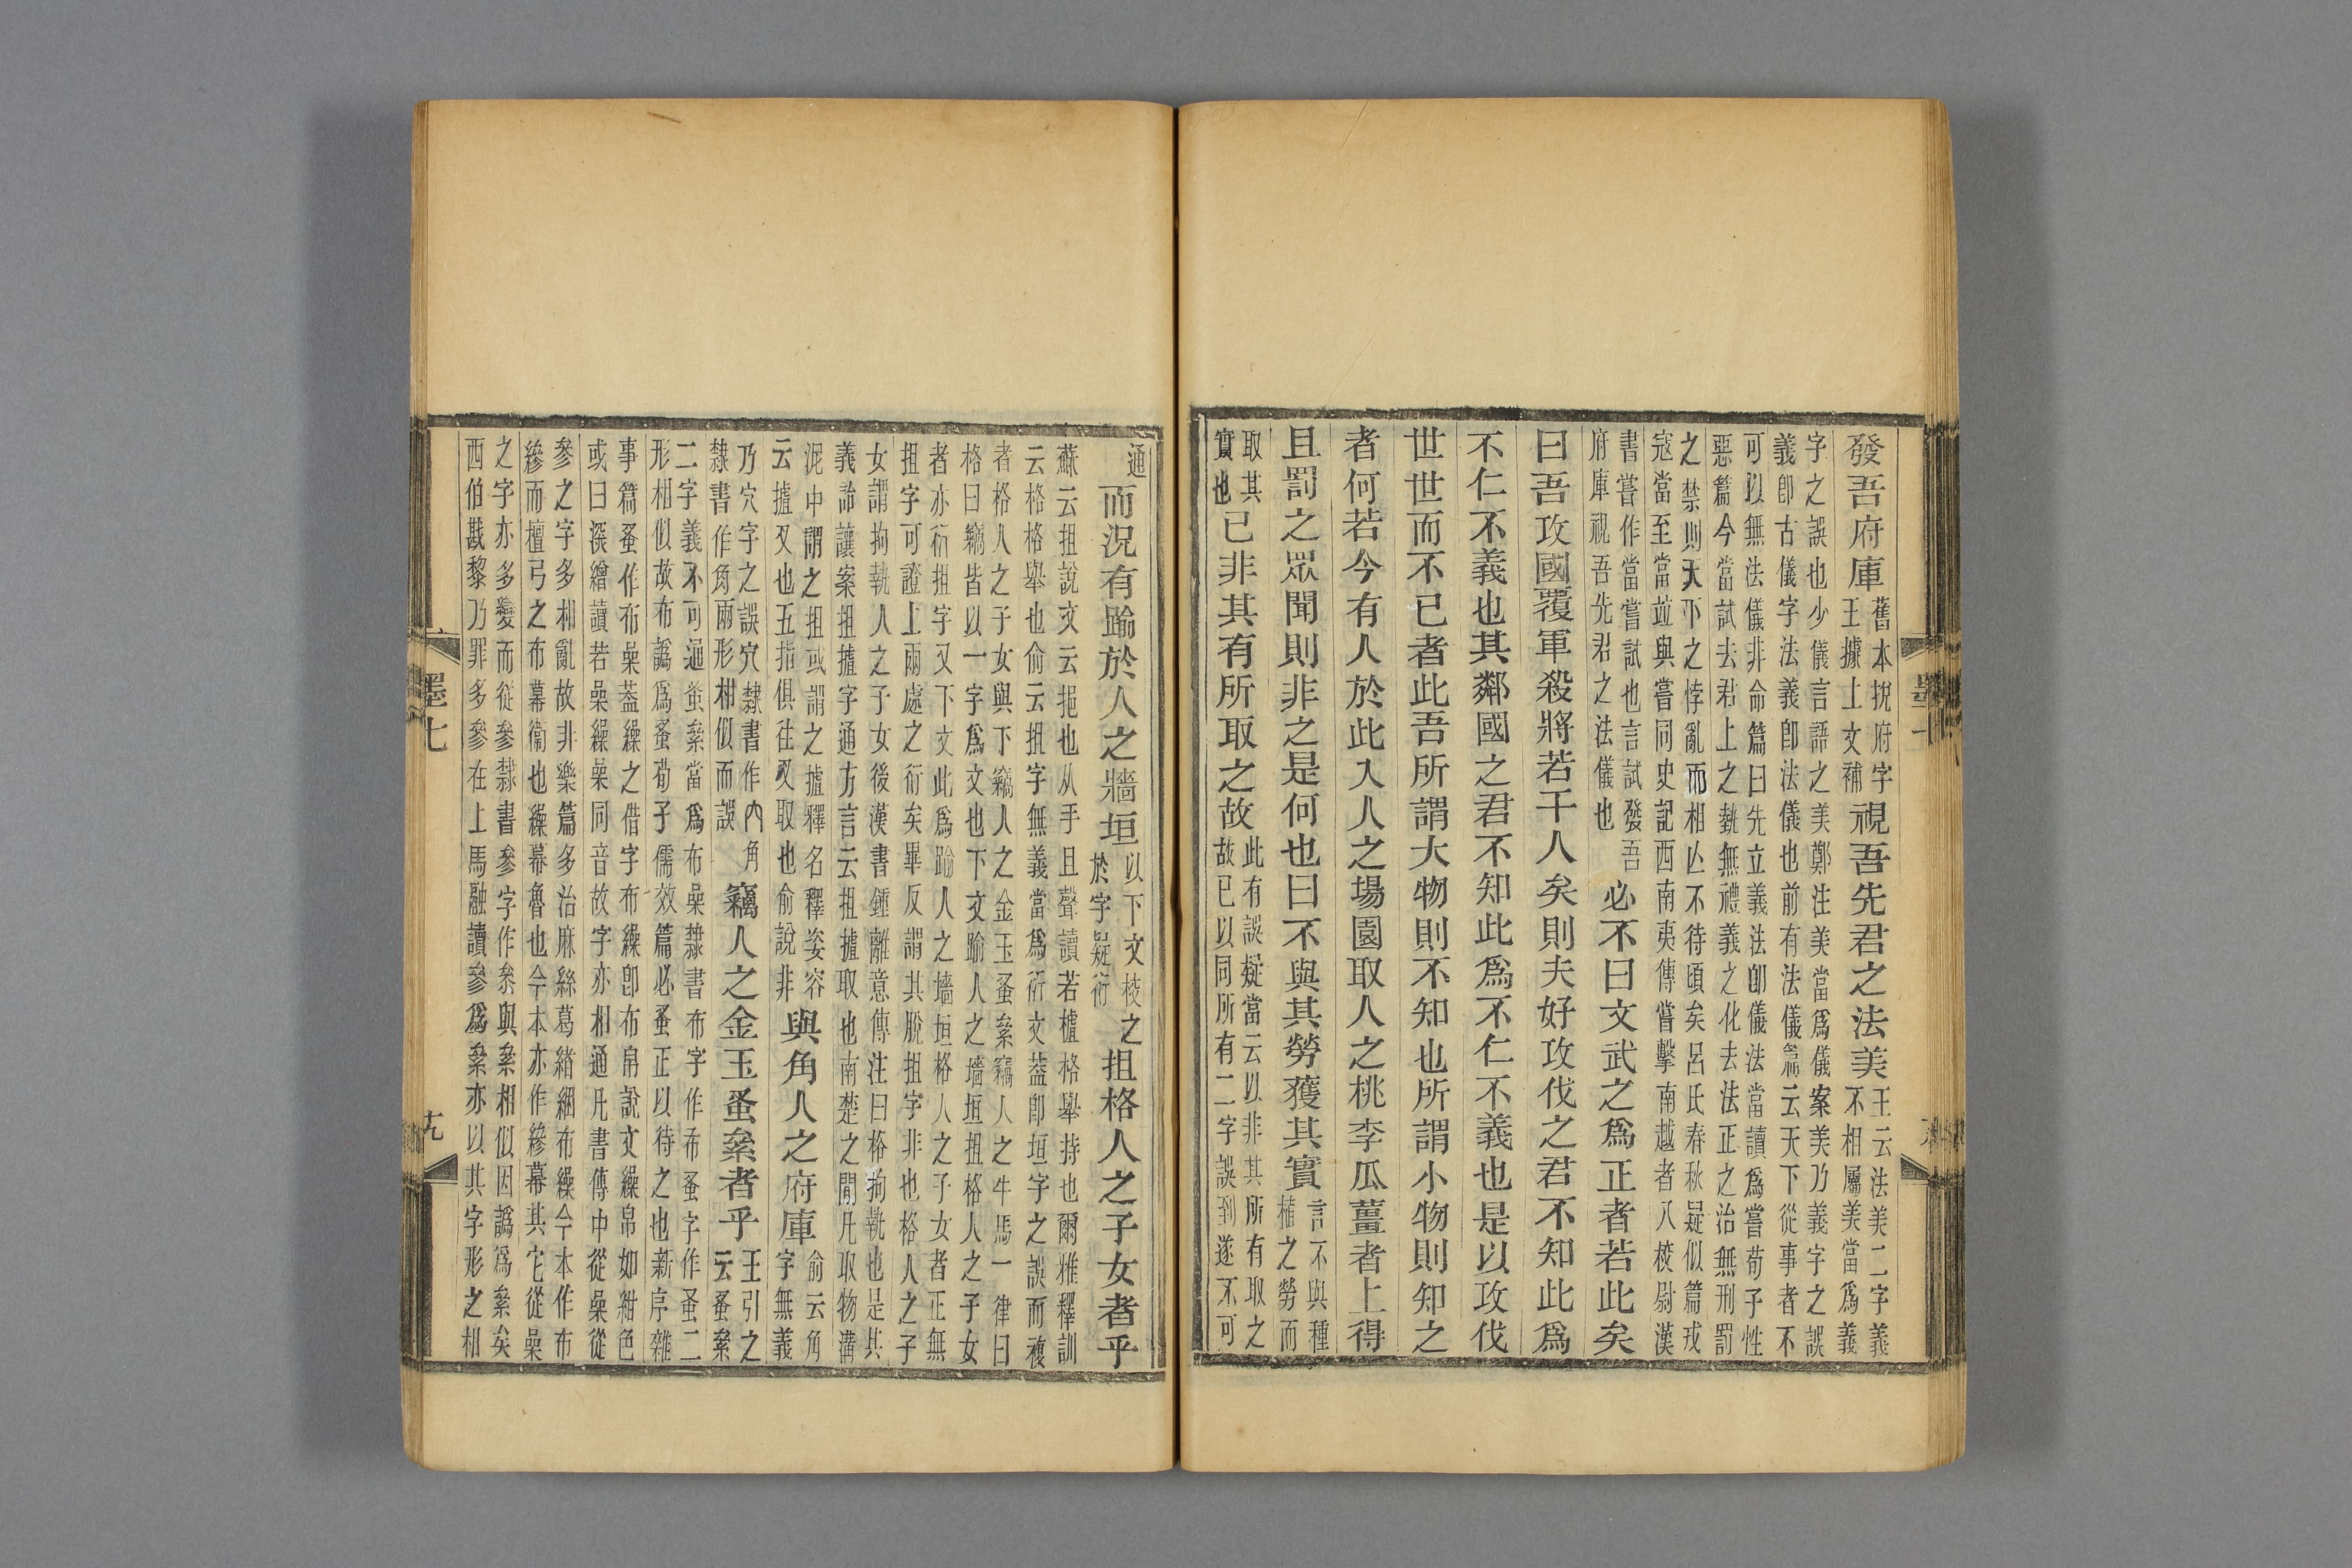 發吾府庫舊本挩府字王據上文補視吾先君之法美王云法美二字義不相屬美當爲義
字之誤也少儀言語之美鄭注美當爲儀案美乃義字之誤義卽古儀字法義卽法儀也前有法儀篇云天下從事者不
可以無法儀非命篇曰先立義法卽儀法當讀爲嘗荀子性惡篇今當試去君上之埶無禮義之化去法正之治無刑罰
之禁則天下之悖亂而相亾不待頃矣呂氏春秋疑似篇戎寇當至當竝與嘗同史記西南夷傳嘗擊南越者八校尉漢
書嘗作當當嘗試也言試發吾府庫視吾先君之法儀也必不曰文武之爲正者若此矣
曰吾攻國覆軍殺將若干人矣則夫好攻伐之君不知此爲
不仁不義也其鄰國之君不知此爲不仁不義也是以攻伐
世世而不已者此吾所謂大物則不知也所謂小物則知之
者何若今有人於此入人之場園取人之桃李瓜薑者上得
且罰之眾聞則非之是何也曰不與其勞獲其實言不與種植之勞而
取其實也已非其有所取之故此有誤疑當云以非其所有取之故已以同所有二字誤到遂不可
通而況有踰於人之牆垣以下文校之於字疑衍抯格人之子女者乎
蘇云抯說文云挹也从手且聲讀若樝格舉持也爾雅釋訓云格格舉也俞云抯字無義當爲衍文葢卽垣字之誤而複
者格人之子女與下竊人之金玉蚤絫竊人之牛馬一律曰格曰竊皆以一字爲文也下文踰人之墻垣抯格人之子女
者亦衍抯字又下文此爲踰人之墻垣格人之子女者正無抯字可證上兩處之衍矣畢反謂其脫抯字非也格人之子
女謂拘執人之子女後漢書鍾離意傳注曰格拘執也是其義諭讓案抯摣字通方言云抯摣取也南楚之閒凡取物溝
泥中謂之抯或謂之摣釋名釋姿容云摣叉也五指俱往叉取也俞說非與角人之府庫俞云角字無義
乃穴字之誤穴隸書作內角隸書作肏兩形相似而誤竊人之金玉蚤絫者乎王引之云蚤絫
二字義不可通蚤絫當爲布喿隸書布字作㠴蚤字作蚤二形相似故布譌爲蚤荀子儒效篇必蚤正以待之也新序雜
事篇蚤作布喿葢繰之借字布繰卽布帛說文繰帛如紺色或曰深繒讀若喿繰喿同音故字亦相通凡書傳中從喿從
參之字多相亂故非樂篇多治麻絲葛緒綑布繰今本作布縿而檀弓之布幕衞也繰幕魯也今本亦作縿幕其它從喿
之字亦多變而從參隸書參字作叅與絫相似因譌爲絫矣西伯戡黎乃罪多參在上馬融讀參爲絫亦以其字形之相
墨七